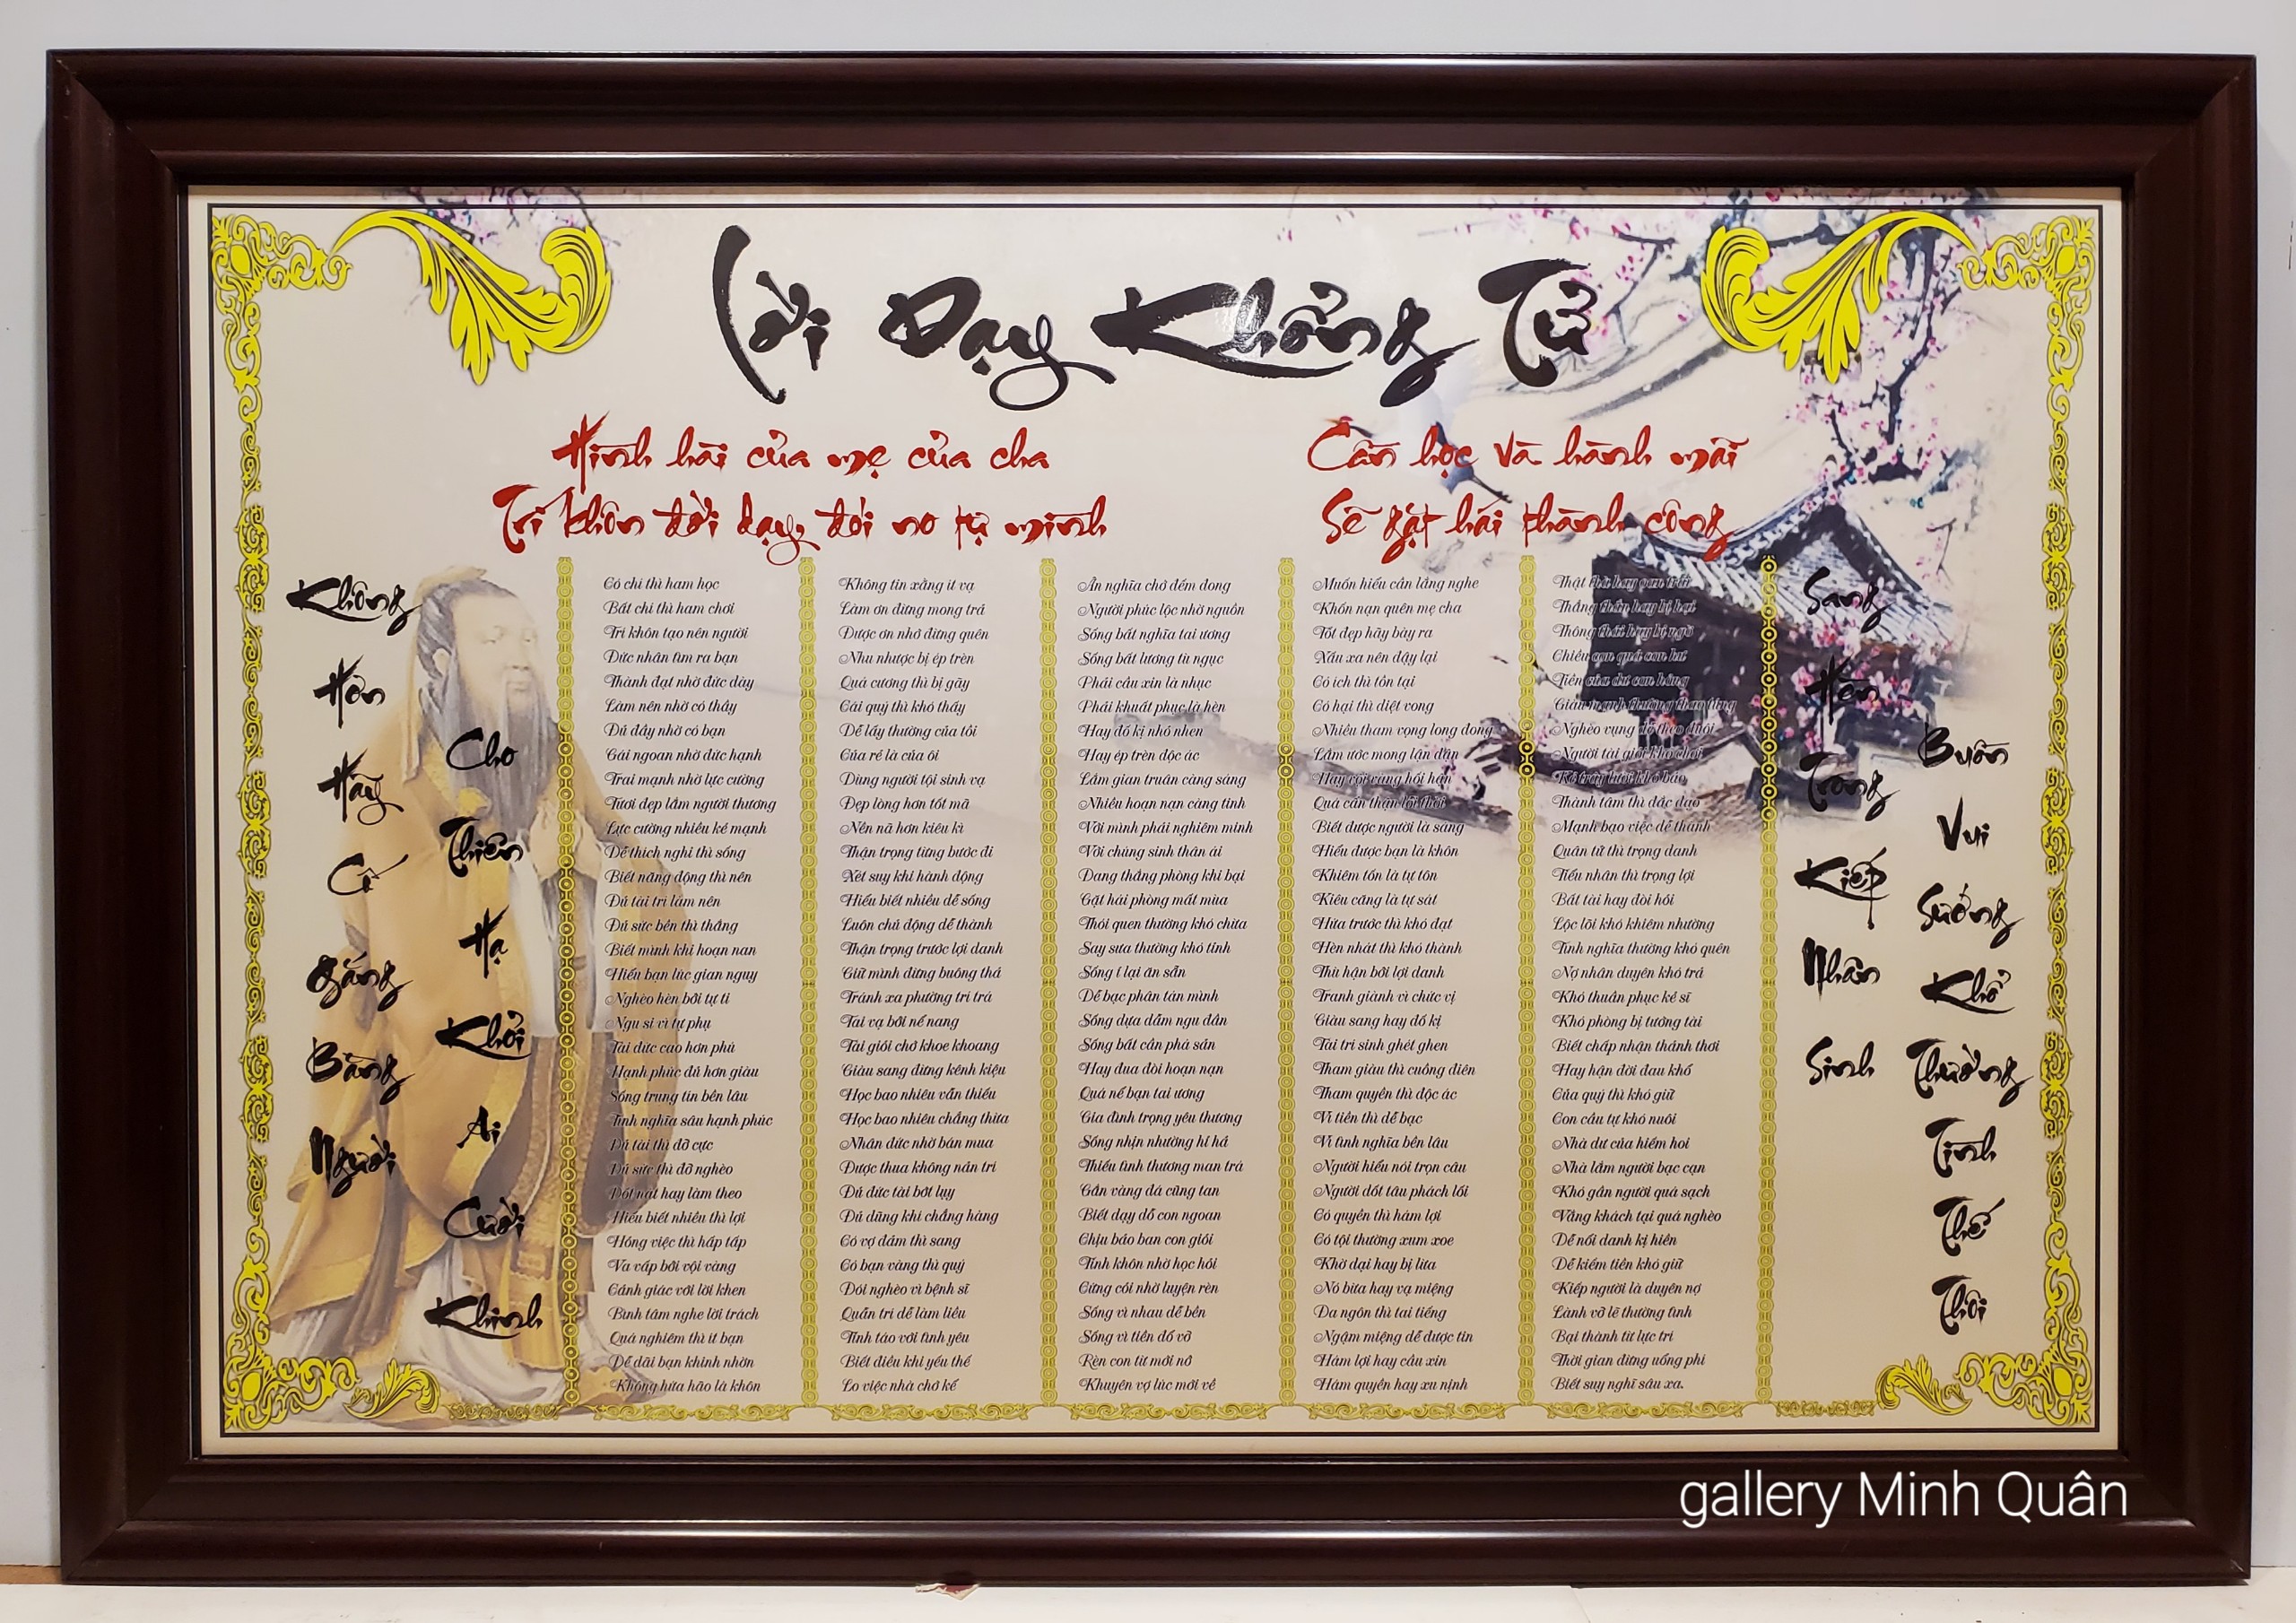 Lời Dạy Khổng Tử
Hình hài của mẹ của cha
Trí khôn đời dạy, đói no tự mình
Cần học và hành mãi
Sẽ gặt hái thành công
Không
Hơn
Hãy
Cố
Gắng
Bằng
Người
Cho
Thiên
Hạ
Khỏi
Ai
Cười
Khinh
Có chí thì ham học
Bất chí thì ham chơi
Trí khôn tạo nên người
Đức nhân tìm ra bạn
Thành đạt nhờ đức dày
Làm nên nhờ có thầy
Đủ đầy nhờ có bạn
Gái ngoan nhờ đức hạnh
Trai mạnh nhờ lực cường
Tươi đẹp lắm người thương
Lực cường nhiều kẻ mạnh
Dễ thích nghi thì sống
Biết năng động thì nên
Đủ tài trí làm nên
Đủ sức bền thì thắng
Biết mình khi hoạn nan
Hiểu bạn lúc gian nguy
Nghèo hèn bởi tự ti
Ngu si vì tự phụ
Tài đức cao hơn phú
Hạnh phúc đủ hơn giàu
Sống trung tín bền lâu
Tình nghĩa sâu hạnh phúc
Đủ tài thì đỡ cực
Đủ sức thì đỡ nghèo
Dốt nát hay làm theo
Hiểu biết nhiều thì lợi
Hỏng việc thì hấp tấp
Va vấp bởi vội vàng
Cảnh giác với lời khen
Bình tâm nghe lời trách
Quá nghiêm thì ít bạn
Dễ dãi bạn khinh nhờn
Không hứa hão là khôn
Không tin xằng ít vạ
Làm ơn đừng mong trả
Được ơn nhớ đừng quên
Nhu nhược bị ép trèn
Quá cương thì bị gãy
Cái quý thì khó thấy
Dễ lấy thường của tồi
Của rẻ là của ôi
Dùng người tội sinh vạ
Đẹp lòng hơn tốt mã
Nền nã hơn kiêu kì
Thận trọng từng bước đi
Xét suy khi hành động
Hiểu biết nhiều dễ sống
Luôn chủ động dễ thành
Thận trọng trước lợi danh
Giữ mình đừng buông thả
Tránh xa phường trí trá
Tai vạ bởi nể nang
Tài giỏi chớ khoe khoang
Giàu sang đừng kênh kiệu
Học bao nhiêu vẫn thiếu
Học bao nhiêu chẳng thừa
Nhân đức nhờ bán mua
Được thua không nản trí
Đủ đức tài bớt lụy
Đủ dũng khí chẳng hàng
Có vợ đảm thì sang
Có bạn vàng thì quý
Đói nghèo vì bệnh sĩ
Quẫn trí dễ làm liều
Tỉnh táo với tình yêu
Biết điều khi yếu thế
Lo việc nhà chớ kể
Ân nghĩa chớ đếm đong
Người phúc lộc nhờ nguồn
Sống bất nghĩa tai ương
Sống bất lương tù ngục
Phải cầu xin là nhục
Phải khuất phục là hèn
Hay đố kị nhỏ nhen
Hay ép trên độc ác
Lắm gian truân càng sáng
Nhiều hoạn nạn càng tinh
Với mình phải nghiêm minh
Với chúng sinh thân ái
Đang thắng phòng khi bại
Gặt hái phòng mất mùa
Thói quen thường khó chừa
Say sưa thường khó tỉnh
Sống ỉ lại ăn sẵn
Dễ bạc phân tán mình
Sống dựa dẫm ngu đần
Sống bất cần phá sản
Hay đua đòi hoạn nạn
Quá nể bạn tai ương
Gia đình trọng yêu thương
Sống nhịn nhường hỉ hả
Thiếu tình thương man trá
Gắn vàng đá cũng tan
Biết dạy dỗ con ngoan
Chịu bảo ban con giỏi
Tính khôn nhờ học hỏi
Cứng cỏi nhờ luyện rèn
Sống vì nhau dễ bền
Sống vì tiền đổ vỡ
Rèn con từ mới nở
Khuyên vợ lúc mới về
Muốn hiểu cần lắng nghe
Khốn nạn quên mẹ cha
Tốt đẹp hãy bày ra
Xấu xa nên đậy lại
Có ích thì tồn tại
Có hại thì diệt vong
Nhiều tham vọng long đong
Lắm ước mong lận đận
Hay vội vàng hối hận
Quá cẩn thận lỗi thời
Biết được người là sáng
Hiểu được bạn là khôn
Khiêm tốn là tự tôn
Kiêu căng là tự sát
Hứa trước thì khó đạt
Hèn nhát thì khó thành
Thù hận bởi lợi danh
Tranh giành vì chức vị
Giàu sang hay đố kị
Tài trí sinh ghét ghen
Tham giàu thì cuồng điên
Tham quyền thì độc ác
Vì tiền thì dễ bạc
Vì tình nghĩa bền lâu
Người hiểu nói trọn câu
Người dốt tâu phách lối
Có quyền thì hám lợi
Có tội thường xum xoe
Khờ dại hay bị lừa
Nó bừa hay vạ miệng
Đa ngôn thì tai tiếng
Ngậm miệng dễ được tin
Hám lợi hay cầu xin
Hám quyền hay xu nịnh
Thật thà hay oan trái
Thẳng thắn hay bị hại
Thông thái hay bị ngờ
Chiều con quá con hư
Tiền của dư con hỏng
Giàu mạnh thường thao túng
Nghèo vụng
Người tài giỏi khó chơi
Thành tâm thì đắc đạo
Mạnh bạo việc dễ thành
Quân tử thì trọng danh
Tiểu nhân thì trọng lợi
Bất tài hay đòi hỏi
Lộc lõi khó khiêm nhường
Tình nghĩa thường khó quên
Nợ nhân duyên khó trả
Khó thuần phục kẻ sĩ
Khó phòng bị tướng tài
Biết chấp nhận thảnh thơi
Hay hận đời đau khổ
Của quý thì khó giữ
Con cầu tự khó nuôi
Nhà dư của hiếm hoi
Nhà lắm người bạc cạn
Khó gần người quá sạch
Vắng khách tại quá nghèo
Dễ nổi danh kị hiền
Dễ kiếm tiền khó giữ
Kiếp người là duyên nợ
Lành vỡ lẽ thường tình
Bại thành từ lực trí
Thời gian đừng uổng phí
Biết suy nghĩ sâu xa.
Sang
Hèn
Trong
Kiếp
Nhân
Sinh
Buồn
Vui
Sướng
Khổ
Thường
Tình
Thế
Thôi
gallery Minh Quân